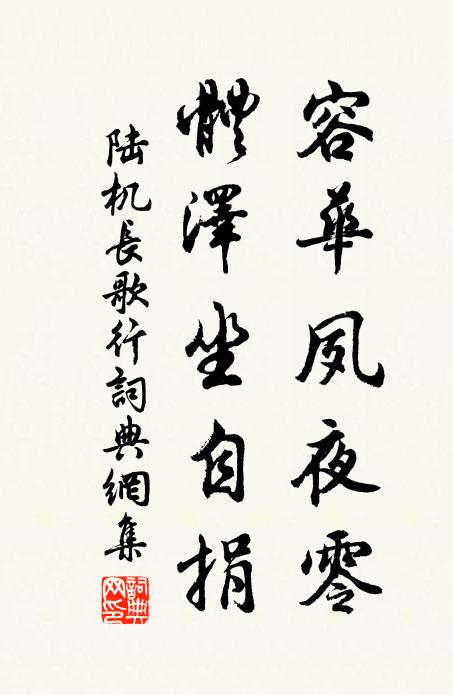 容華夙夜零
體澤坐自捐
陆机長歌行詞典網集
詞典网印